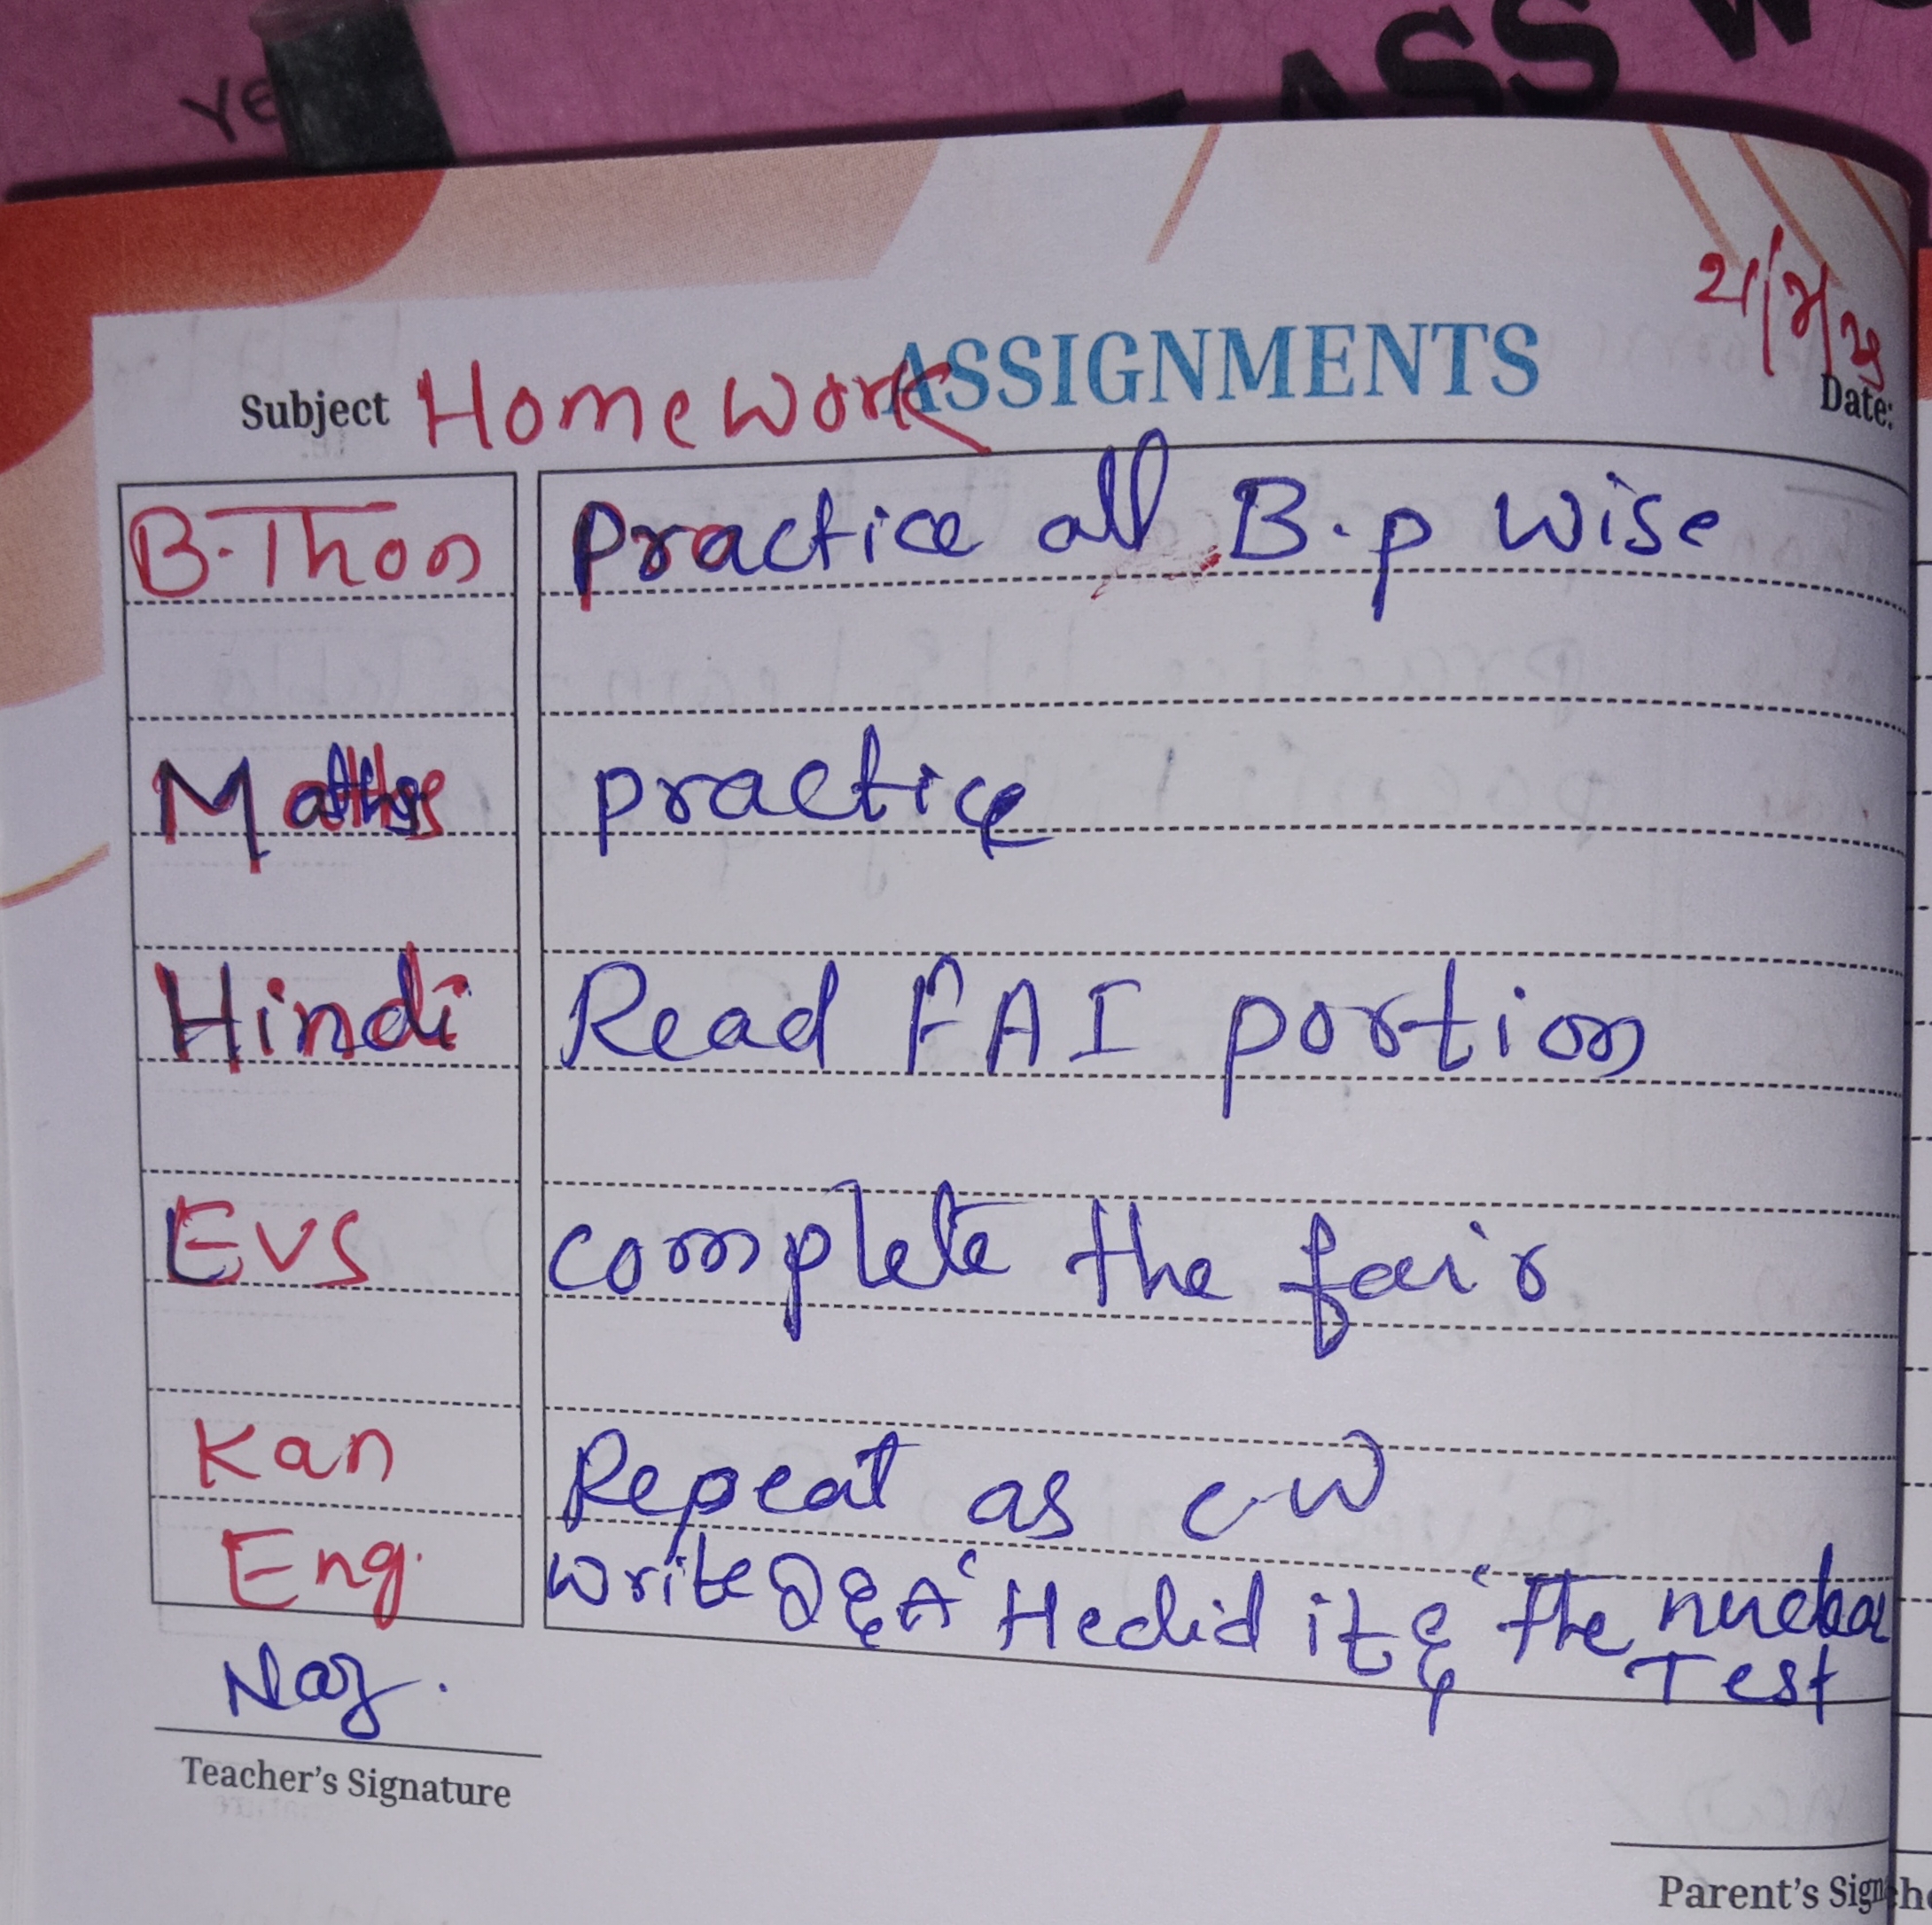 YE
ASS W
ASSIGNMENTS
Subject Home Work
Date:
B.Thon Practice all B.p wise
Maths practice
Hindi Read FAI portion
EVS complete the fair
Kan Repeat as c.w
Eng. write Q & A 'He did it & 'The nuclear
Test
Naz.
Teacher's Signature
Parent's Sign